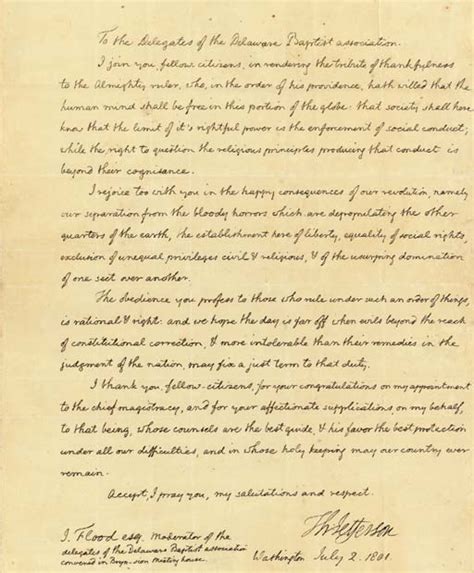 To the Delegates of the Delaware Baptist association.
I join you, fellow citizens, in rendering the tribute of thankfulness
to the Almighty ruler, who, in the order of his providence, hath willed that the
human mind shall be free in this portion of the globe: that society shall here
know that the limit of it's rightful power is the enforcement of social conduct;
while the right to question the religious principles producing that conduct is
beyond their cognisance.
I rejoice too with you in the happy consequences of our revolution, namely
our separation from the bloody horrors which are depopulating the other
quarters of the earth, the establishment here of liberty, equality of social rights,
exclusion of unequal privileges civil & religious, & of the usurping domination
of one sect over another.
The obedience you profess to those who rule under such an order of things,
is rational & right: and we hope the day is far off when evils beyond the reach
of constitutional correction, & more intolerable than their remedies in the
judgment of the nation, may fix a just term to that duty.
I thank you, fellow-citizens, for your congratulations on my appointment
to the chief magistracy, and for your affectionate supplications, on my behalf,
to that being, whose counsels are the best guide, & his favor the best protection
under all our difficulties, and in whose holy keeping may our country ever
remain.
Accept, I pray you, my salutations and respect.
Th: Jefferson
J. Flood esq. Moderator of the
delegates of the Delaware Baptist association
convened in Bryn-zion Meeting house.
Washington July 2. 1801.